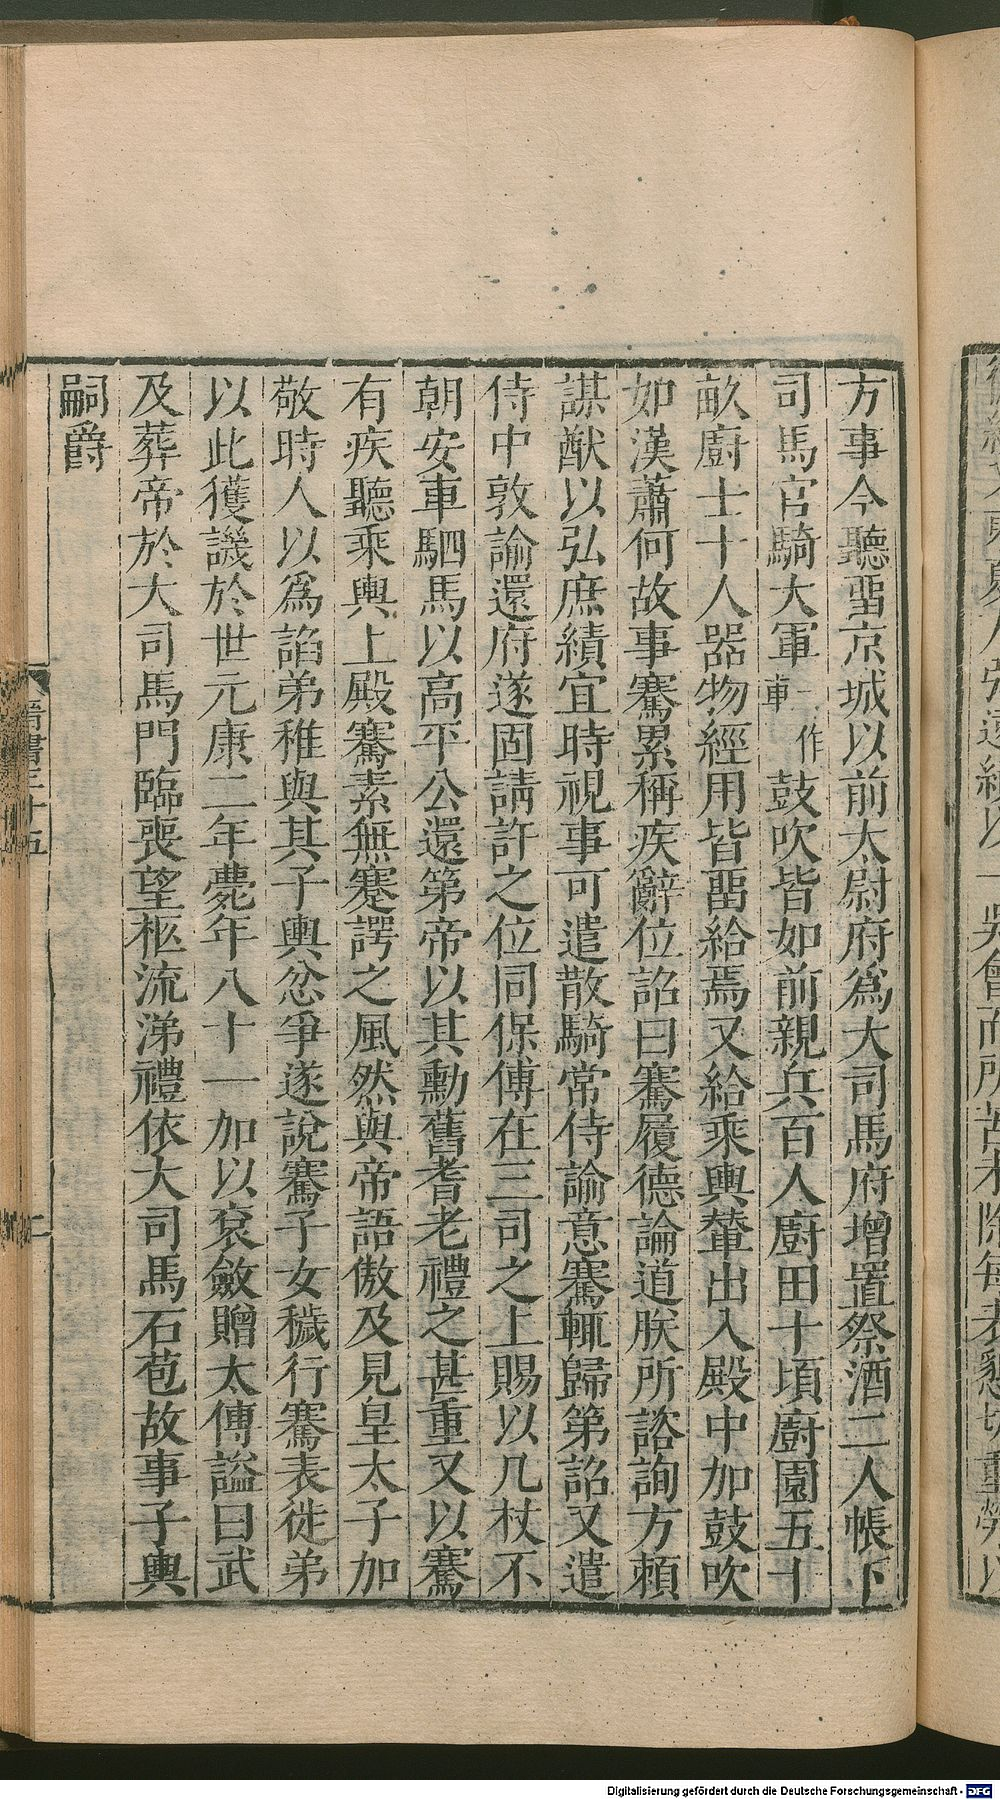 方事今聽畱京城以前大尉府爲大司馬府增置祭酒二人帳下
司馬官騎大軍一作車鼓吹皆如前親兵百人廚田十頃廚園五十
畝廚士十人器物經用皆畱給焉又給乘輿輦出入殿中加鼓吹
如漢蕭何故事騫累稱疾辭位詔曰騫履德論道朕所諮詢方賴
謀猷以弘庶績宜時視事可遣散騎常侍諭意騫輒歸第詔又遣
侍中敦諭還府遂固請許之位同保傅在三司之上賜以几杖不
朝安車駟馬以高平公還第帝以其勳舊耆老禮之甚重又以騫
有疾聽乘輿上殿騫素無蹇諤之風然與帝語傲及見皇太子加
敬時人以爲諂弟稚與其子輿忿爭遂說騫子女穢行騫表徙弟
以此獲譏於世元康二年薨年八十一加以衮斂贈太傅謚曰武
及葬帝於大司馬門臨喪望柩流涕禮依大司馬石苞故事子輿
嗣爵
晉書三十五
二
Digitalisierung gefördert durch die Deutsche Forschungsgemeinschaft - DFG